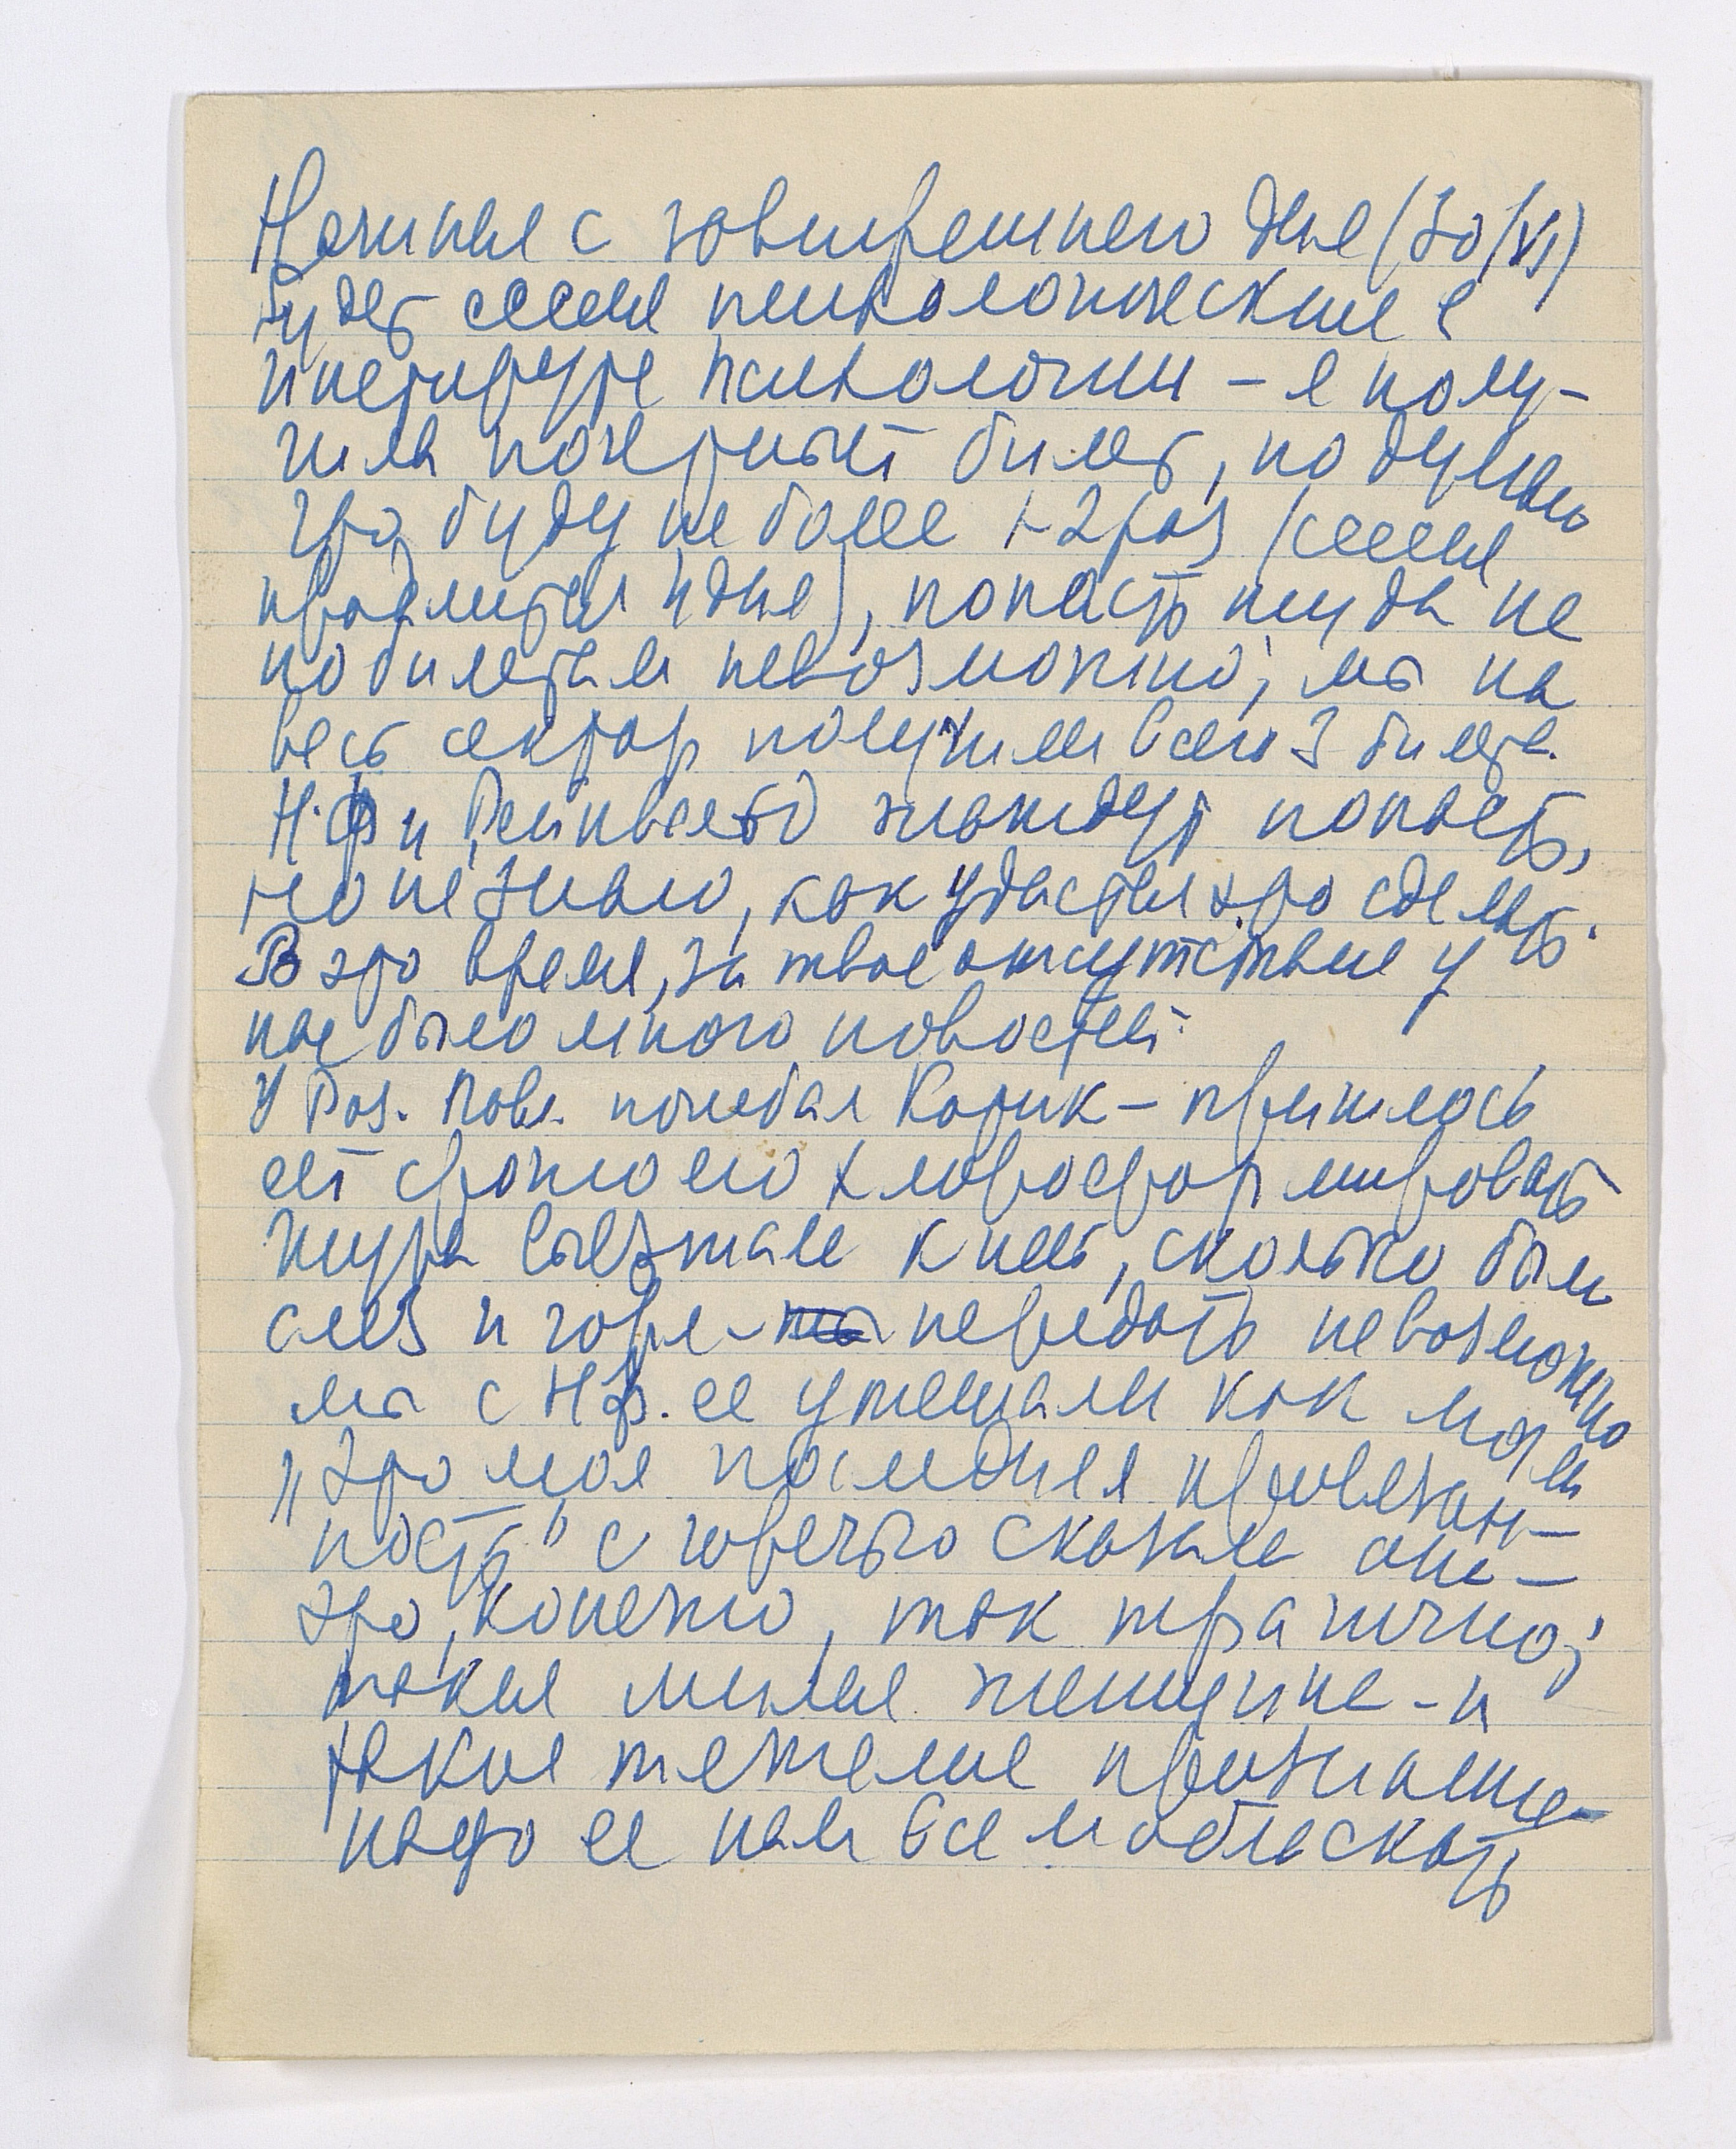 Начиная с завтрашнего дня (30/VI)
будет сессия психологическая в
Институте психологии – я полу-
чила почетный билет, но думаю
что буду не более 1-2 раз (сессия
продлится 4 дня), попасть туда не
по билетам невозможно; мы на
весь сектор получили всего 3 билета.
Н.Ф и жаждут попасть,
но не знаю, как удастся это сделать.
В это время, за твое отсутствие у
нас было много новостей:
У Роз. Павл. погибал Котик – пришлось
ей срочно его хлороформировать
Шура выезжала к ней, сколько было
слез и горя – передать невозможно
мы с НФ. ее утешали как могли
„это моя последняя привязан-
ность" с горечью сказала она –
это, конечно, так трагично;
такая милая женщина – и
такое тяжелое признание –
надо ее нам всем обласкать